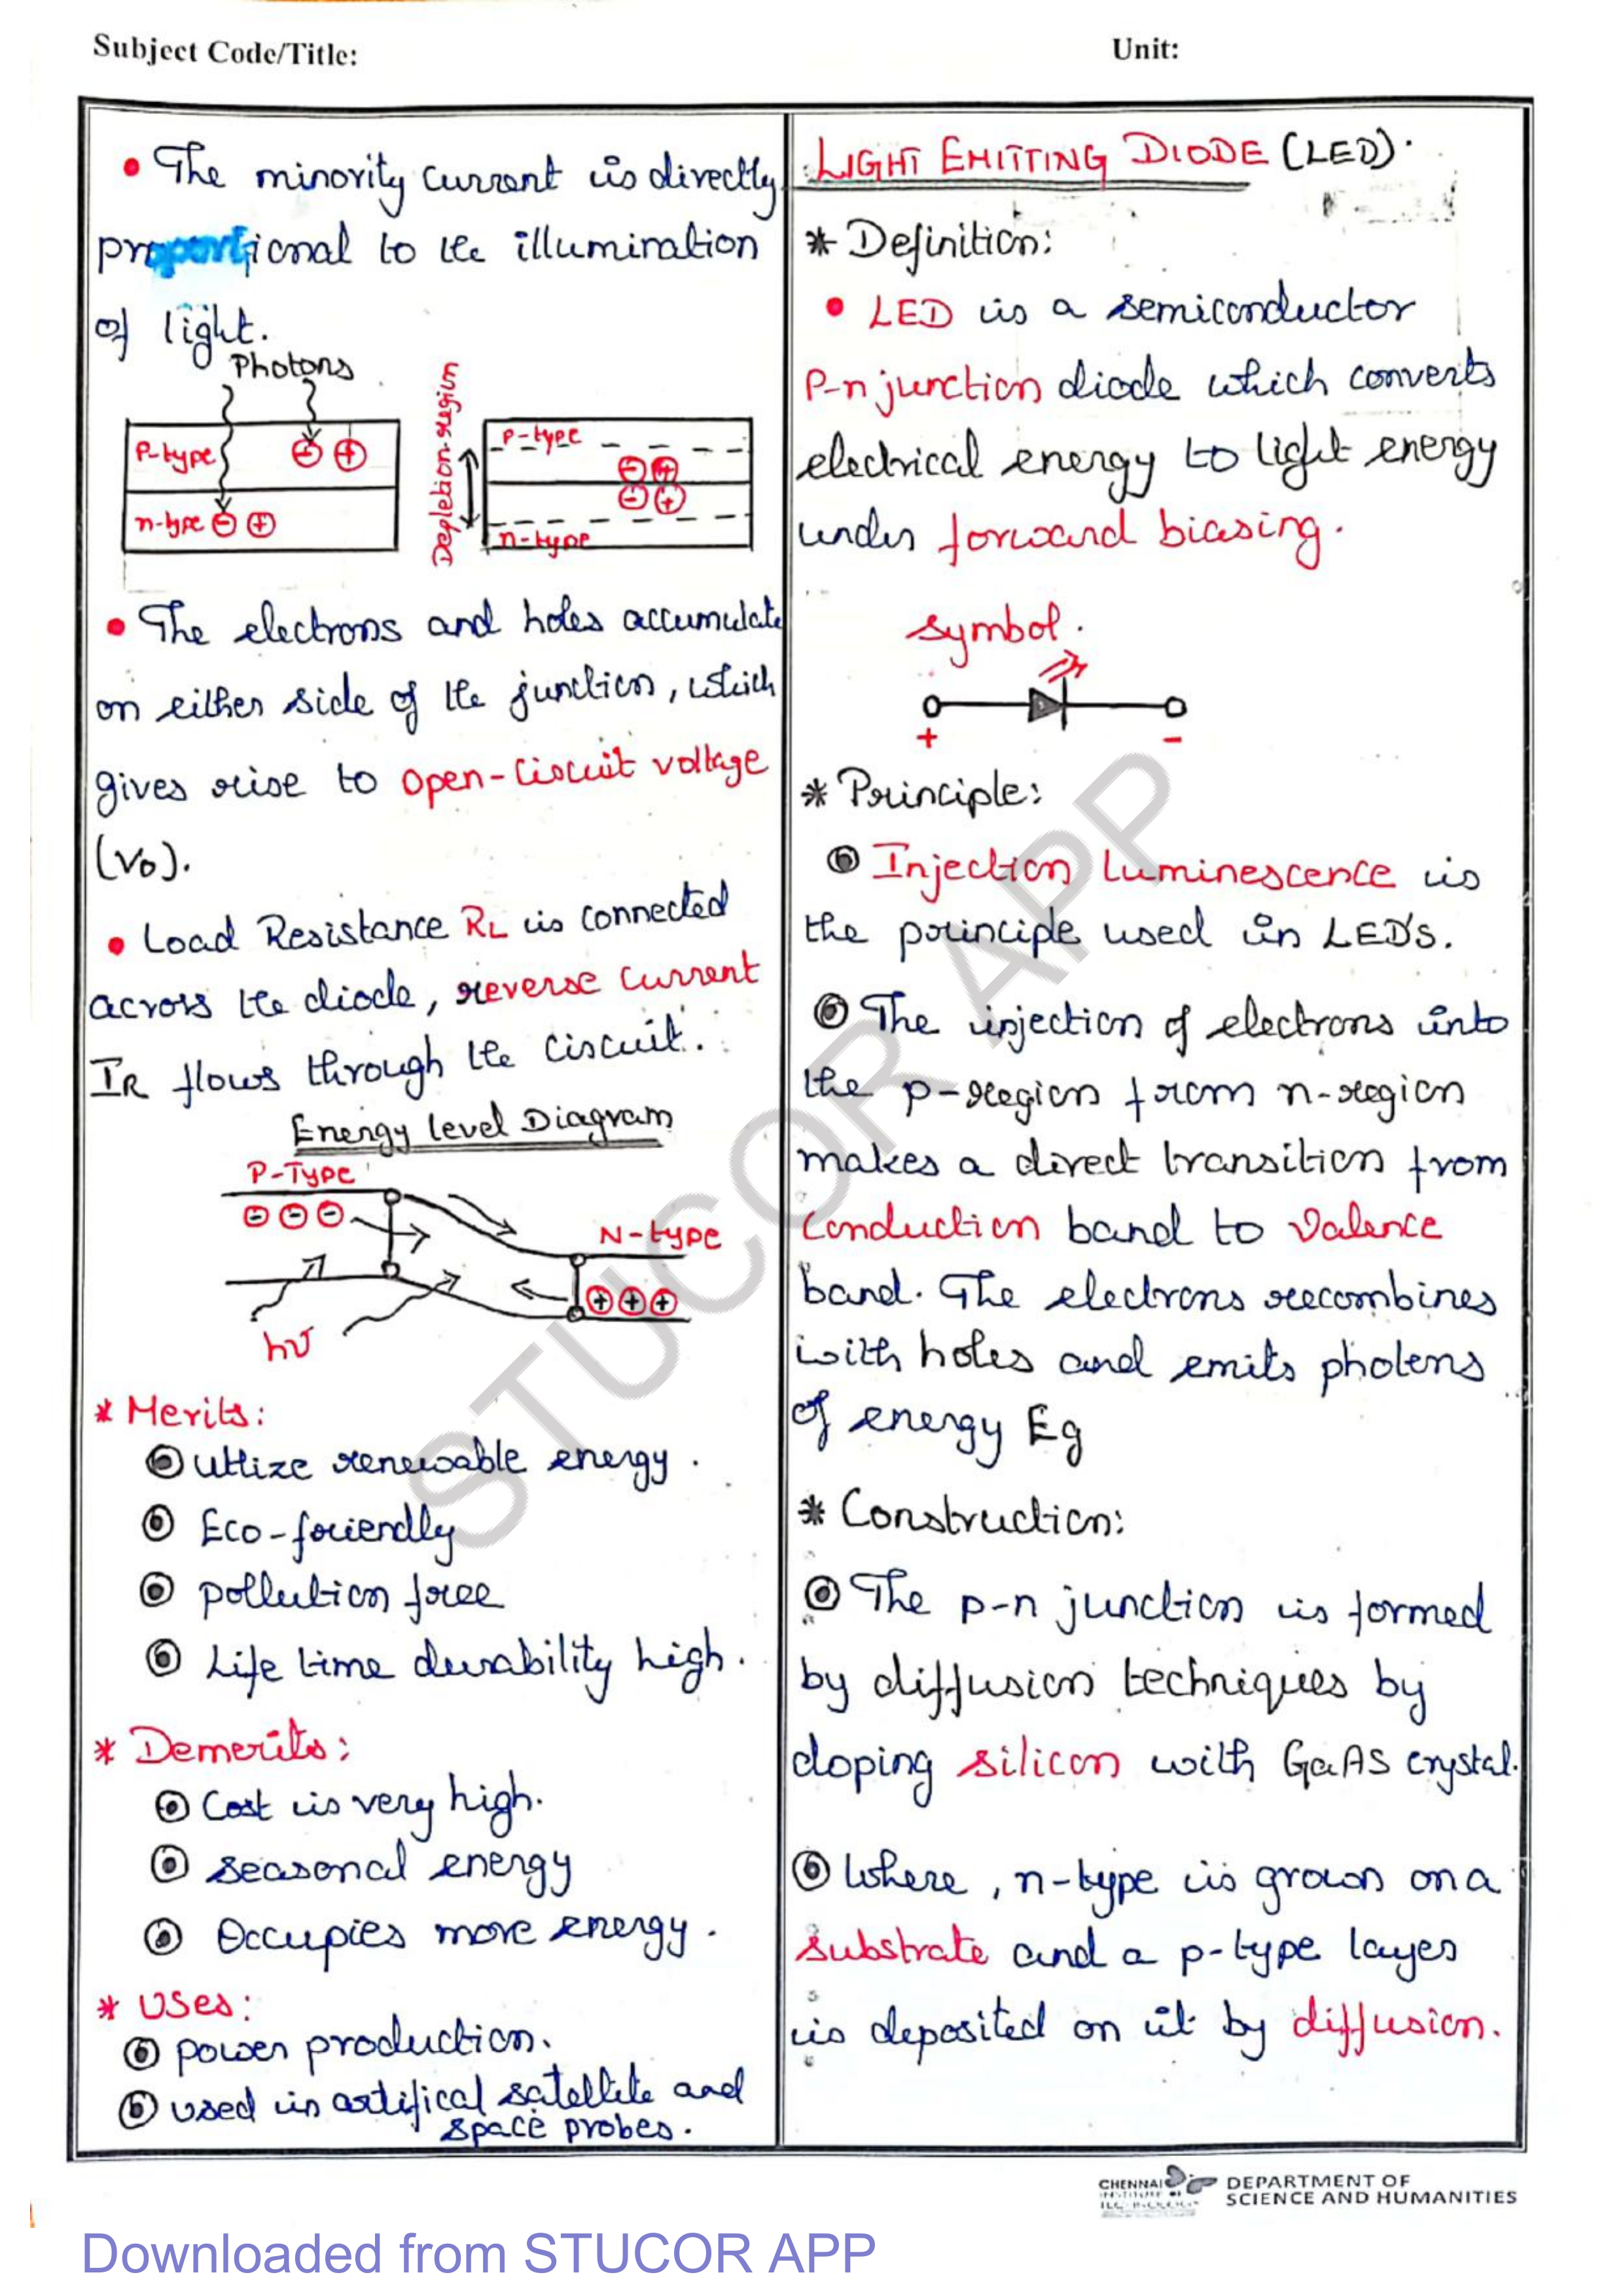 Subject Code/Title:
Unit:
• The minority current is directly
proportional to the illumination
of light.
Photons
P-type
n-type
Depletion region
P-type
n-type
• The electrons and holes accumulate
on either side of the junction, which
gives rise to open-circuit voltage
(Vo).
• Load Resistance RL is connected
across the diode, reverse current
IR flows through the circuit.
Energy level Diagram
P-Type
N-type
hν
* Merits:
Utlize renewable energy.
Eco-friendly
pollution free
Life time durability high.
* Demerits:
Cost is very high.
seasonal energy
Occupies more energy.
* Uses:
power production.
used in artifical satellite and
space probes.
LIGHT EMITTING DIODE (LED).
* Definition:
• LED is a semiconductor
P-n junction diode which converts
electrical energy to light energy
under forward biasing.
symbol.
+ -
* Principle:
Injection luminescence is
the principle used in LED'S.
The injection of electrons into
the p-region from n-region
makes a direct transition from
conduction band to valence
band. The electrons recombines
with holes and emits photons
of energy Eg
* Construction:
The p-n junction is formed
by diffusion techniques by
doping silicon with GaAS crystal.
Where, n-type is grown on a
substrate and a p-type layer
is deposited on it by diffusion.
STUCOR APP
CHENNAI
INSTITUTE OF
TECHNOLOGY
DEPARTMENT OF
SCIENCE AND HUMANITIES
Downloaded from STUCOR APP